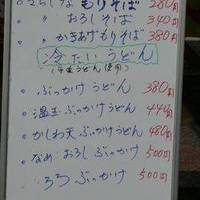 ○さらしな もりそば 280円
〃 〃 おろしそば 340円
〃 〃 かきあげもりそば 380円
冷たいうどん
(手量うどん使用)
○ ぶっかけうどん 380円
○ 温玉ぶっかけうどん 440円
○ かしわ天ぶっかけうどん 480円
○ なめこおろしぶっかけ 500円
○ とろろぶっかけ 500円